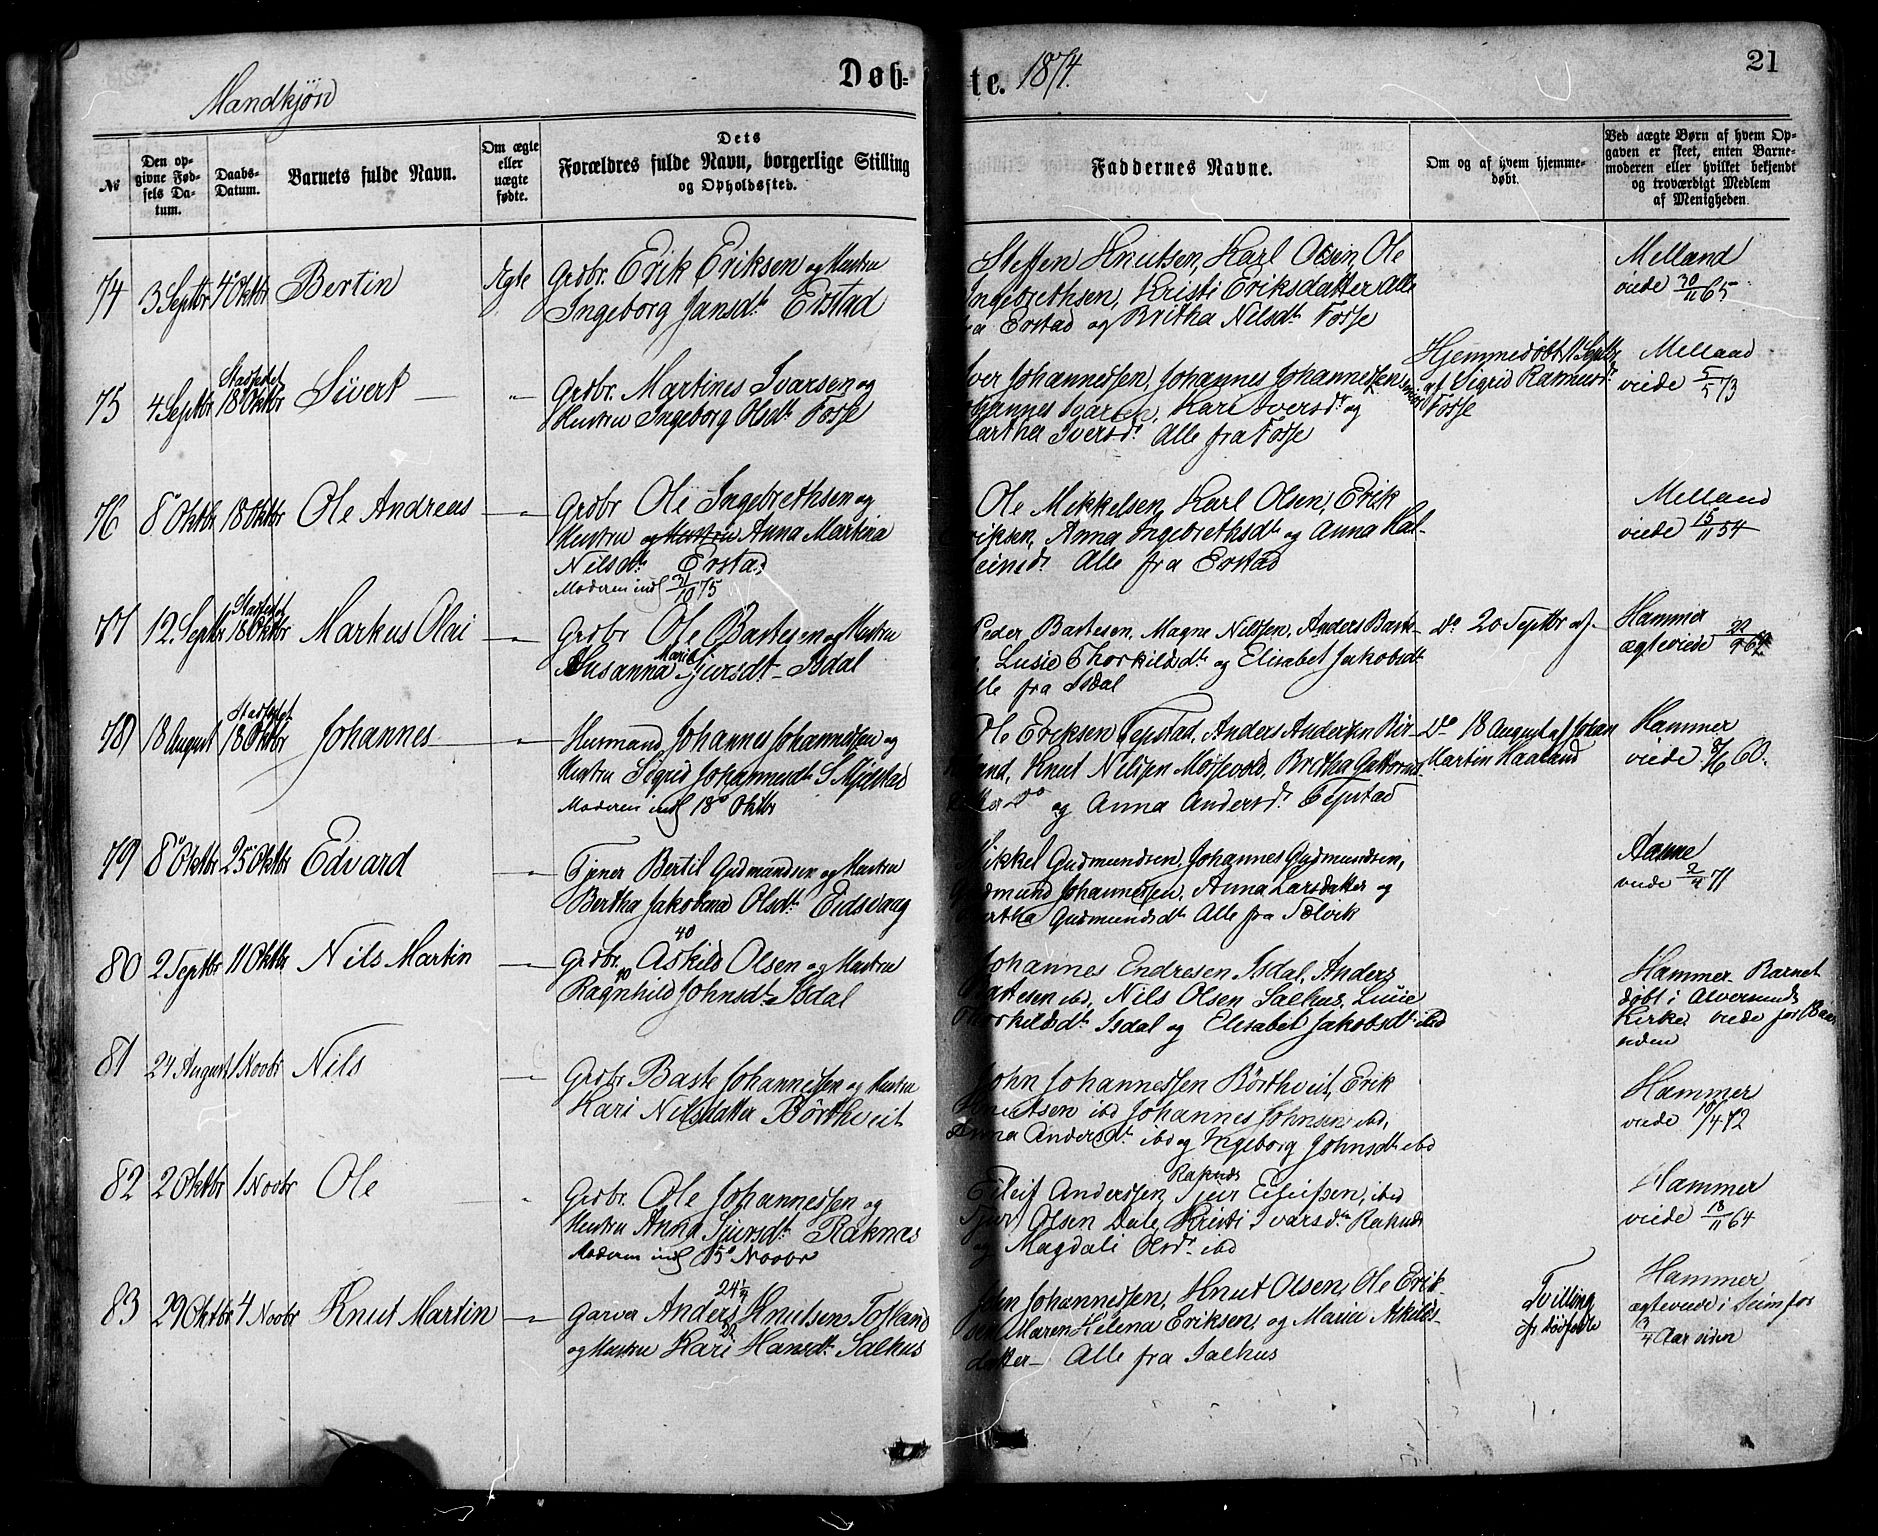 Mandkjön
Døb=
te. 1874.
21
№
Den op-
givne Fød-
sels Da-
tum.
Daabs-
Datum.
Barnets fulde Navn.
Om ægte
eller
uægte
fødte.
Dets
Forældres fulde Navn, borgerlige Stilling
og Opholdssted.
Faddernes Navne.
Om og af hvem hjemme-
døbt.
Ved uægte Børn af hvem Op-
gaven er skeet, enten Barne-
moderen eller hvilket bekjendt
og troværdigt Medlem
af Menigheden.
74 3 Septbr 4 Oktbr Bertin Ægte Grdbr. Erik Eriksen og Hustru
Ingeborg Jansdt Erstad
Steffen Knutsen, Karl Olsen, Ole
Ingebrethsen, Kristi Eriksdatter Alle
fra Erstad og Britha Nilsdt Fosse
Melland
viede 30/11 65
75 4 Septbr Stadfestet 18 Oktbr Sivert — " Grdbr. Martines Ivarsen og
Hustru Ingeborg Olsdt Fosse
Iver Johannessen, Johannes Johannessen
Johannes Ivarsen, Kari Iversdt og
Martha Iversdt Alle fra Fosse
Hjemmedöbt 11 Septbr
af Sigrid Rasmusdt
Fosse
Mellaad
viede 5/1 73
76 8 Oktbr 18 Oktbr Ole Andreas — Grdbr Ole Ingebrethsen og
Hustru og Hustru Anna Martina
Nilsdt Erstad
Moderen indl 31/10 75
Ole Mikkelsen, Karl Olsen, Erik
Eriksen, Anna Ingebrethsdt og Anna Hal-
steinsdt Alle fra Erstad
Melland
viede 15/11 54
77 12 Septbr Stadfestet 18 Oktbr Markus Olai — Grdbr Ole Bastesen og Hustru
Susanna Marie Sjursdt Isdal
Peder Bastesen, Magne Nilssen, Anders Baste-
Lusie Thorkildsdt og Elisabet Jakobsdt
Alle fra Isdal
Do 20 Septbr af —
Hammer
ægteviede
78 18 August Stadfestet 18 Oktbr Johannes — Husmand Johannes Johannessen og
Hustru Sigrid Johannesdt S Mjelstad
Moderen indl 18 Oktbr
Ole Eriksen Tepstad, Anders Anderssen Bir-
land, Knut Nilssen Mossevold, Britha Guttorms-
datter Do og Anna Andersdt Tepstad
Do 18 August af Johan
Martin Haaland
Hammer
viede 8/6 60.
79 8 Oktbr 25 Oktbr Edvard — Tjener Bertil Gudmundsen og Hustru
Bertha Jakobina Olsdt Eidsvaag
Mikkel Gudmundsen, Johannes Gudmundsen,
Gudmund Johannessen, Anna Larsdatter og
Bertha Gudmundsdt Alle fra Tælvik
Aasne
viede 2/4 71
80 2 Septbr 11 Oktbr Nils Martin — Grdbr. Askild Olsen 40 og Hustru
Ragnhild Johnsdt Isdal
Johannes Endresen Isdal, Anders
Bastesen ibd, Nils Olsen Salhus, Lusie
Thorkildsdt Isdal og Elisabet Jakobsdt ibd
Hammer Barnet
döbt i Alversunds
Kirke viede for 18 Aar
siden
81 24 August 1 Novbr Nils — Grdbr Baste Johannessen og Hustru
Kari Nilsdatter Börthveit
John Johannessen Börthveit, Erik
Knutsen ibd Johannes Johnsen ibd,
Anna Andersdt ibd og Ingeborg Johnsdt ibd
Hammer
viede 10/4 72
82 2 Oktbr 1 Novbr Ole " Grdbr. Ole Johannessen og
Hustru Anna Sjursdt Raknes
Moderen indl 15 Novbr
Eileif Anderssen Raknes, Sjur Eileifsen, ibd
Sjur Olsen Dale, Kristi Ivarsdt Raknes
og Magdali Olsdt ibd
Hammer
viede 18/11 64
83 29 Oktbr 4 Novbr Knut Martin — Garver Anders Knutsen Tolland
og Hustru Kari Hansdt Salhus
John Johannessen, Knut Olsen, Ole Erik-
sen, Maren Helena Eriksen og Maria Askilds-
datter — Alle fra Salhus
Tvilling
af dödfödte
Hammer
ægteviede i Seim for
13/4 Aar siden